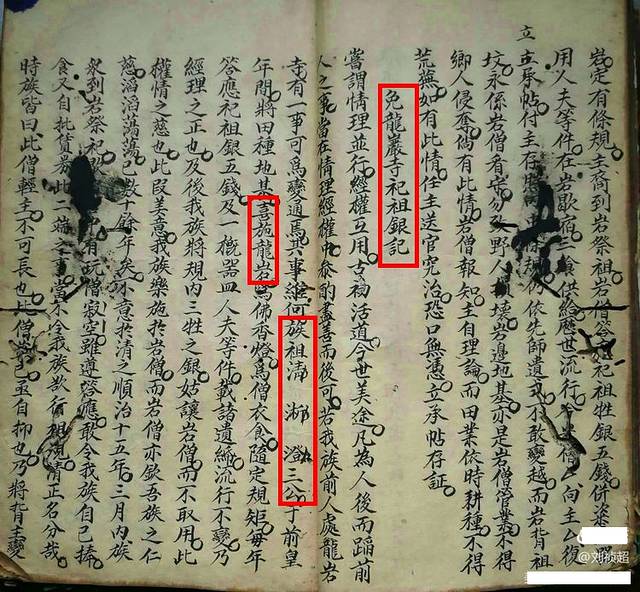 岩定有條規主裔到岩祭祖岩僧答應祀祖牲銀五錢併柒
用人夫等件在岩歇宿二供給歷世流行僧向主厶復
立
立承帖付主存照依先師遺式不敢變越而岩背祖
坟永係岩僧看守勿致野人損壞岩邊地基亦是岩僧管業不得
鄉人侵奪倘有此情岩僧報知主自理論而田業依時耕種不得
荒蕪如有此情任主送官究治恐口無憑立承帖存証
免龍巖寺祀祖銀記
嘗謂情理並行經權互用古初活道今世美途凡為人後而蹈前
人之事當在情理經權中參酌盡善而後可若我族前人處龍岩
寺有一事可爲變通焉其事維何族祖清 湘 澄三公于前皇
年間將田種地基喜施龍岩爲佛香燈爲僧衣食隨定規矩每年
答應祀祖銀五錢及一器皿人夫等件載諸遺編流行不變乃
經理之正也及後我族將規內三牲之銀姑讓岩僧而不取用此
權情之慈也此段美意我族樂施於岩僧而岩僧亦欽吾族之仁
慈滔滔蕩蕩已數十餘年矣不意於清之順治十五年三月內我族
衆到岩祭祀有玩僧寂空雖遵答應敢令我族自己捧
食又自此二端之不令我族欲行祖規清正名分哉
時族皆曰此僧輕主不可長也此僧自抑也乃將背主變
@刘祯超